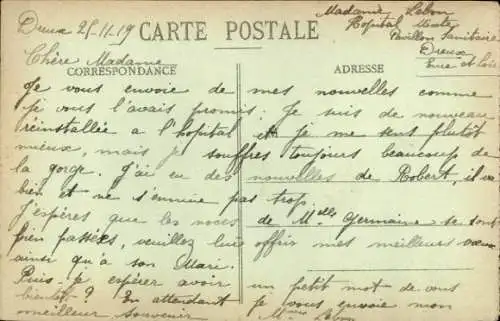 Dreux 25-11-19
CARTE POSTALE
Madame Lebon
Hopital Mixte
Pavillon Sanitaire
Dreux
Eure et Loir
Chère Madame
CORRESPONDANCE
ADRESSE
Je vous envoie de mes nouvelles comme
je vous l'avais promis. Je suis de nouveau
réinstallée a l'hopital et je me sens plutôt
mieux, mais je souffres toujours beaucoup de
la gorge. J'ai eu des nouvelles de Robert, il va
bien et ne s'ennuie pas trop
J'espères que les noces de Melle Germaine se sont
bien passées, veuillez lui offrir mes meilleurs voeux
ainsi qu'à son Mari.
Puis-je espérer avoir un petit mot de vous
bientôt? En attendant je vous envoie mon
meilleur souvenir Mme Lebon